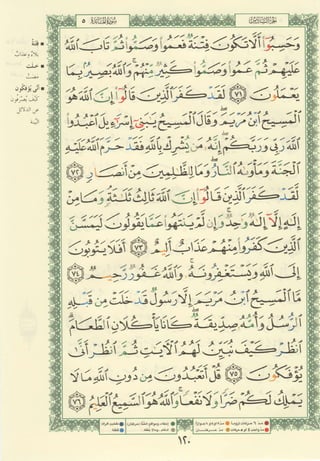 سورة المائدة ٥
وَحَسِبُوٓا۟ أَلَّا تَكُونَ فِتْنَةٌ فَعَمُوا۟ وَصَمُّوا۟ ثُمَّ تَابَ ٱللَّهُ
عَلَيْهِمْ ثُمَّ عَمُوا۟ وَصَمُّوا۟ كَثِيرٌ مِّنْهُمْ ۚ وَٱللَّهُ بَصِيرٌۢ بِمَا
يَعْمَلُونَ ٧١ لَقَدْ كَفَرَ ٱلَّذِينَ قَالُوٓا۟ إِنَّ ٱللَّهَ هُوَ
ٱلْمَسِيحُ ٱبْنُ مَرْيَمَ ۖ وَقَالَ ٱلْمَسِيحُ يَٰبَنِىٓ إِسْرَٰٓءِيلَ ٱعْبُدُوا۟
ٱللَّهَ رَبِّى وَرَبَّكُمْ ۖ إِنَّهُۥ مَن يُشْرِكْ بِٱللَّهِ فَقَدْ حَرَّمَ ٱللَّهُ عَلَيْهِ
ٱلْجَنَّةَ وَمَأْوَىٰهُ ٱلنَّارُ ۖ وَمَا لِلظَّٰلِمِينَ مِنْ أَنصَارٍ ٧٢
لَّقَدْ كَفَرَ ٱلَّذِينَ قَالُوٓا۟ إِنَّ ٱللَّهَ ثَالِثُ ثَلَٰثَةٍ ۘ وَمَا مِنْ
إِلَٰهٍ إِلَّآ إِلَٰهٌ وَٰحِدٌ ۚ وَإِن لَّمْ يَنتَهُوا۟ عَمَّا يَقُولُونَ لَيَمَسَّنَّ
ٱلَّذِينَ كَفَرُوا۟ مِنْهُمْ عَذَابٌ أَلِيمٌ ٧٣ أَفَلَا يَتُوبُونَ
إِلَى ٱللَّهِ وَيَسْتَغْفِرُونَهُۥ ۚ وَٱللَّهُ غَفُورٌ رَّحِيمٌ ٧٤
مَّا ٱلْمَسِيحُ ٱبْنُ مَرْيَمَ إِلَّا رَسُولٌ قَدْ خَلَتْ مِن قَبْلِهِ
ٱلرُّسُلُ وَأُمُّهُۥ صِدِّيقَةٌ ۖ كَانَا يَأْكُلَانِ ٱلطَّعَامَ ۗ
ٱنظُرْ كَيْفَ نُبَيِّنُ لَهُمُ ٱلْءَايَٰتِ ثُمَّ ٱنظُرْ أَنَّىٰ
يُؤْفَكُونَ ٧٥ قُلْ أَتَعْبُدُونَ مِن دُونِ ٱللَّهِ مَا لَا
يَمْلِكُ لَكُمْ ضَرًّا وَلَا نَفْعًا ۚ وَٱللَّهُ هُوَ ٱلسَّمِيعُ ٱلْعَلِيمُ ٧٦
١٢٠
فتنة
خلت
مضت
أنى يؤفكون